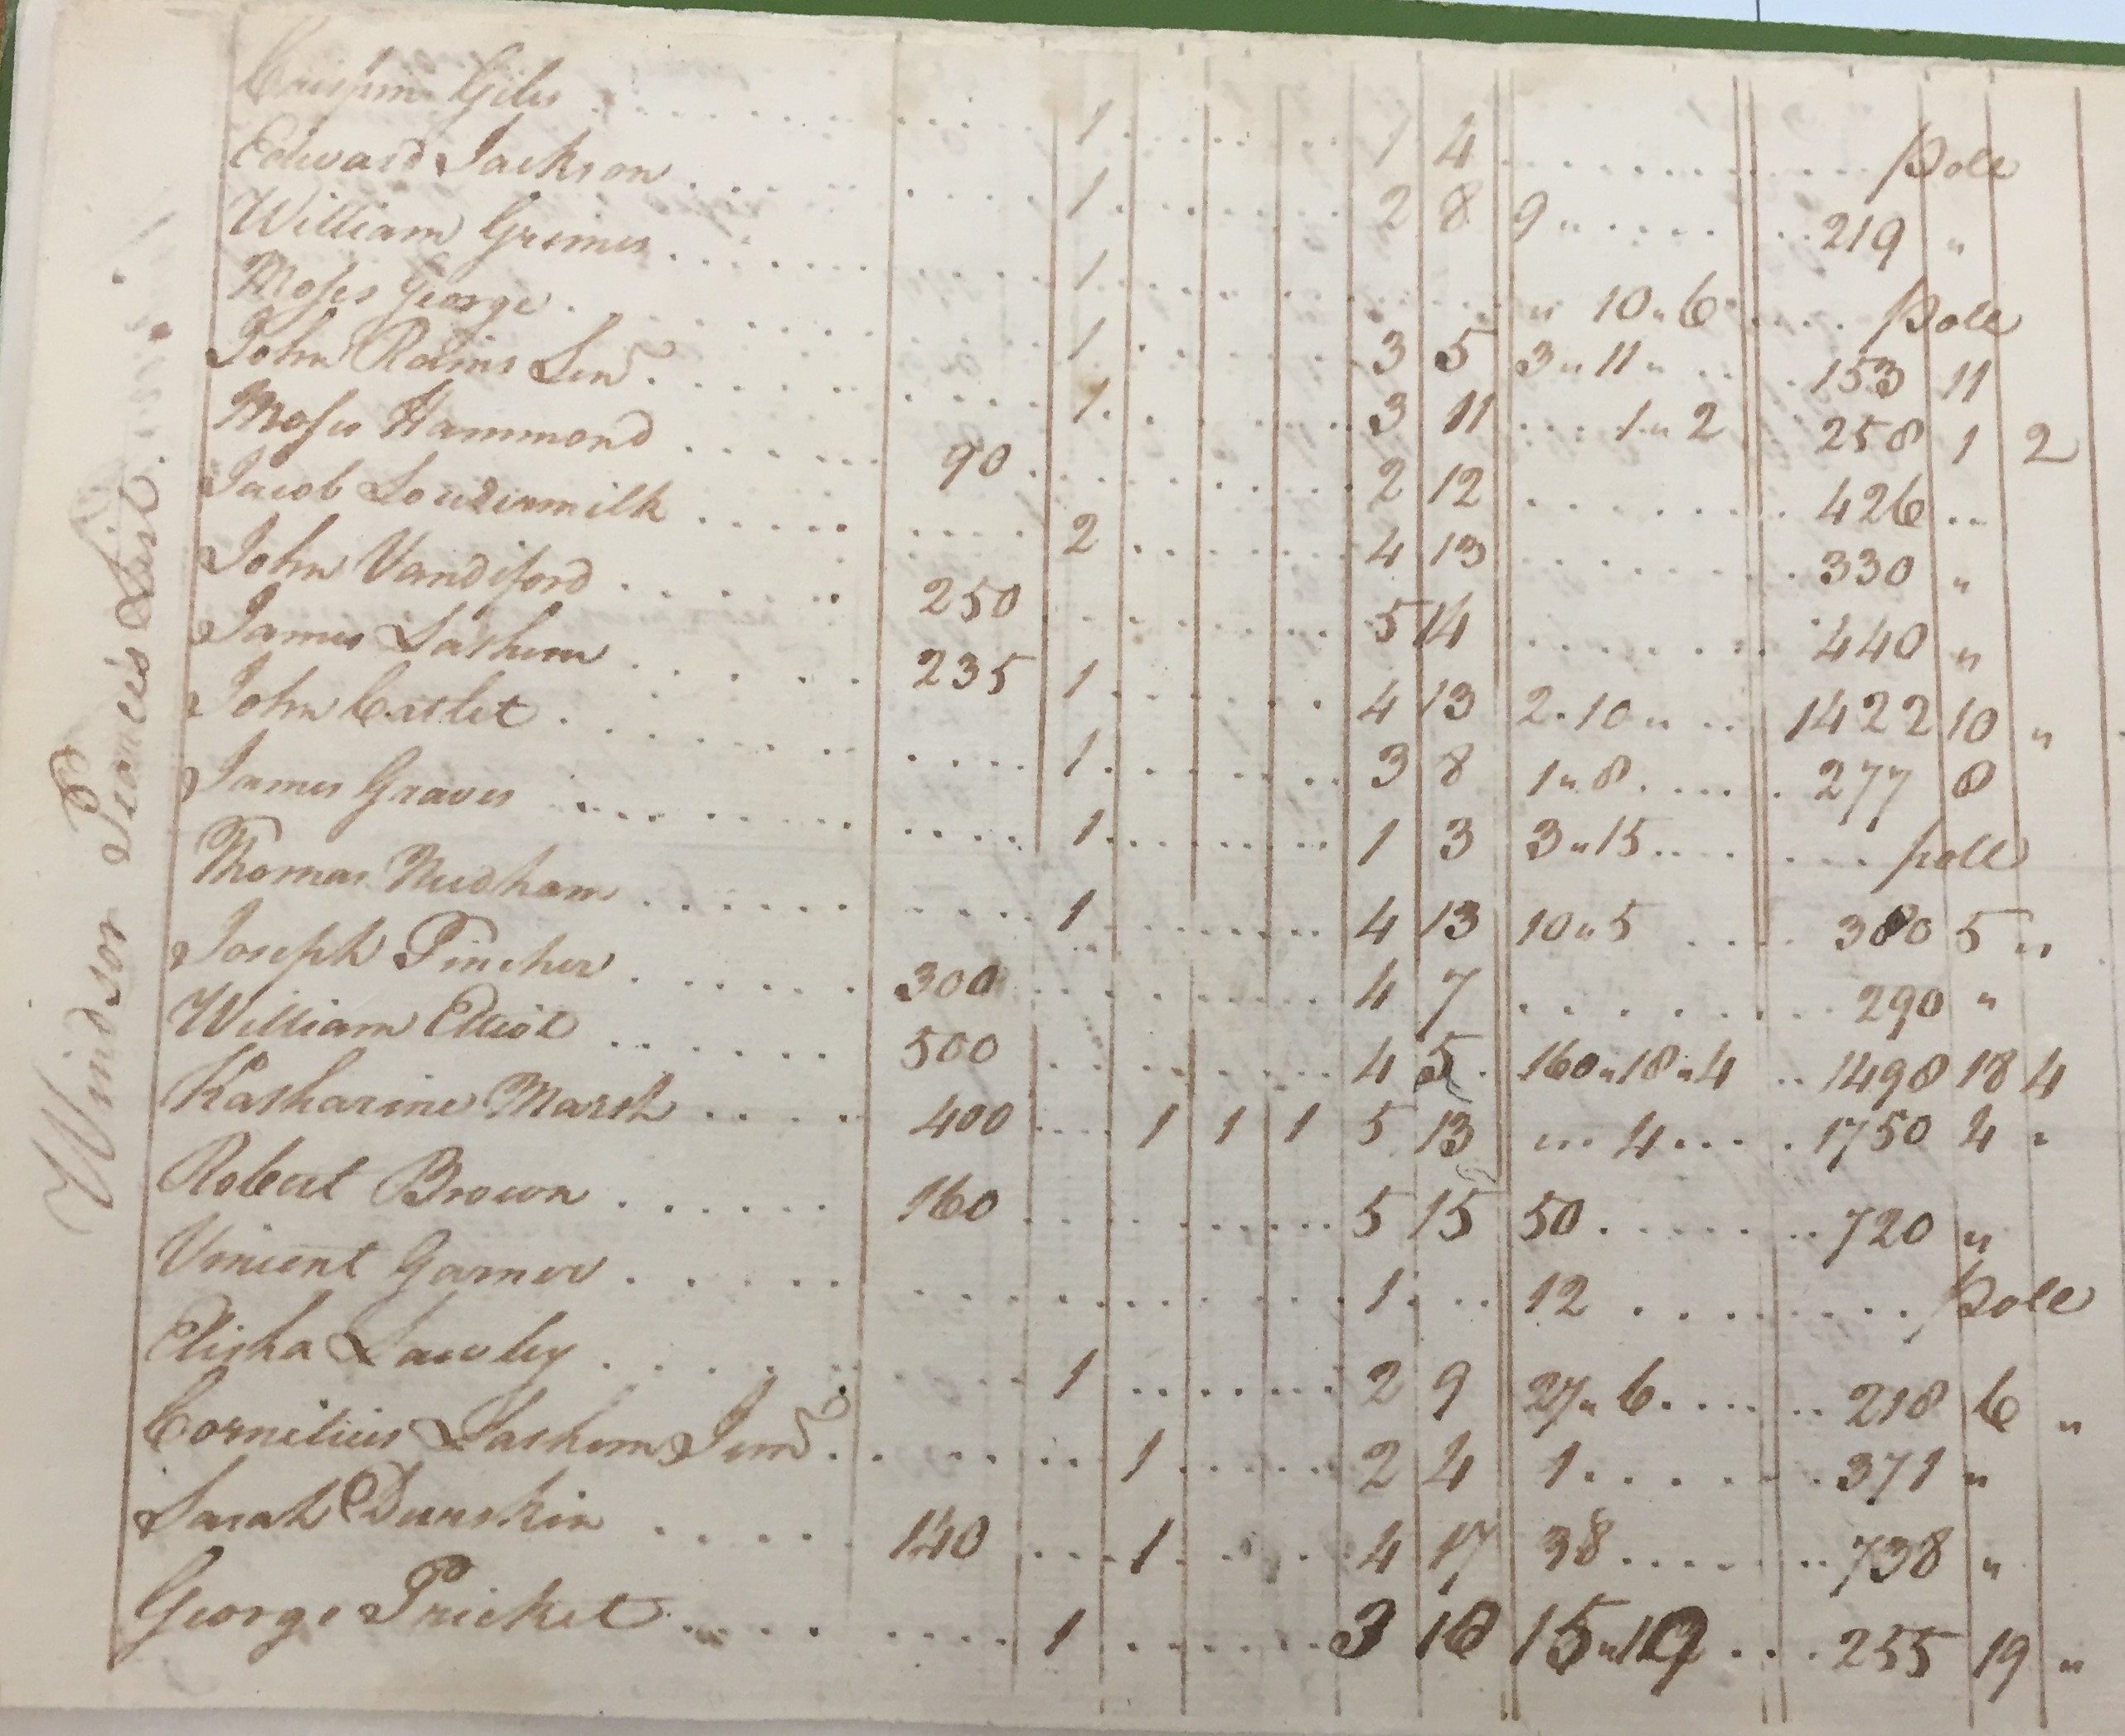 Windsor Pearce's List.
Crispin Giles 1 1 4 Pole
Edward Jackson 1 2 8 9 " 219 "
William Grimes 1 " 10 " 6 Pole
Moses George 1 3 5 3 " 11 " 153 11
John Rains Senr. 1 3 11 1 " 2 258 1 2
Moses Hammond 90 2 12 426
Jacob Loudermilk 2 4 13 330 "
John Vandiford 250 5 14 440 "
James Lathem 235 1 4 13 2 . 10 " 1422 10 "
John Catlet 1 3 8 1 " 8 277 8
James Graves 1 1 3 3 " 15 pole
Thomas Needham 1 4 13 10 " 5 380 5 "
Joseph Pincher 300 4 7 290 "
William Elliot 500 4 5 160 " 18 " 4 1498 18 4
Katharine Marsh 400 1 1 1 5 13 4 1750 4 "
Robert Brown 160 5 15 50 720 "
Vincent Garner 1 12 Pole
Elisha Lawley 1 2 9 27 " 6 218 6 "
Cornelius Lathem Junr. 1 2 4 1 371 "
Sarah Dunskin 140 1 4 17 38 738 "
George Pricket 1 3 10 15 " 19 255 19 "